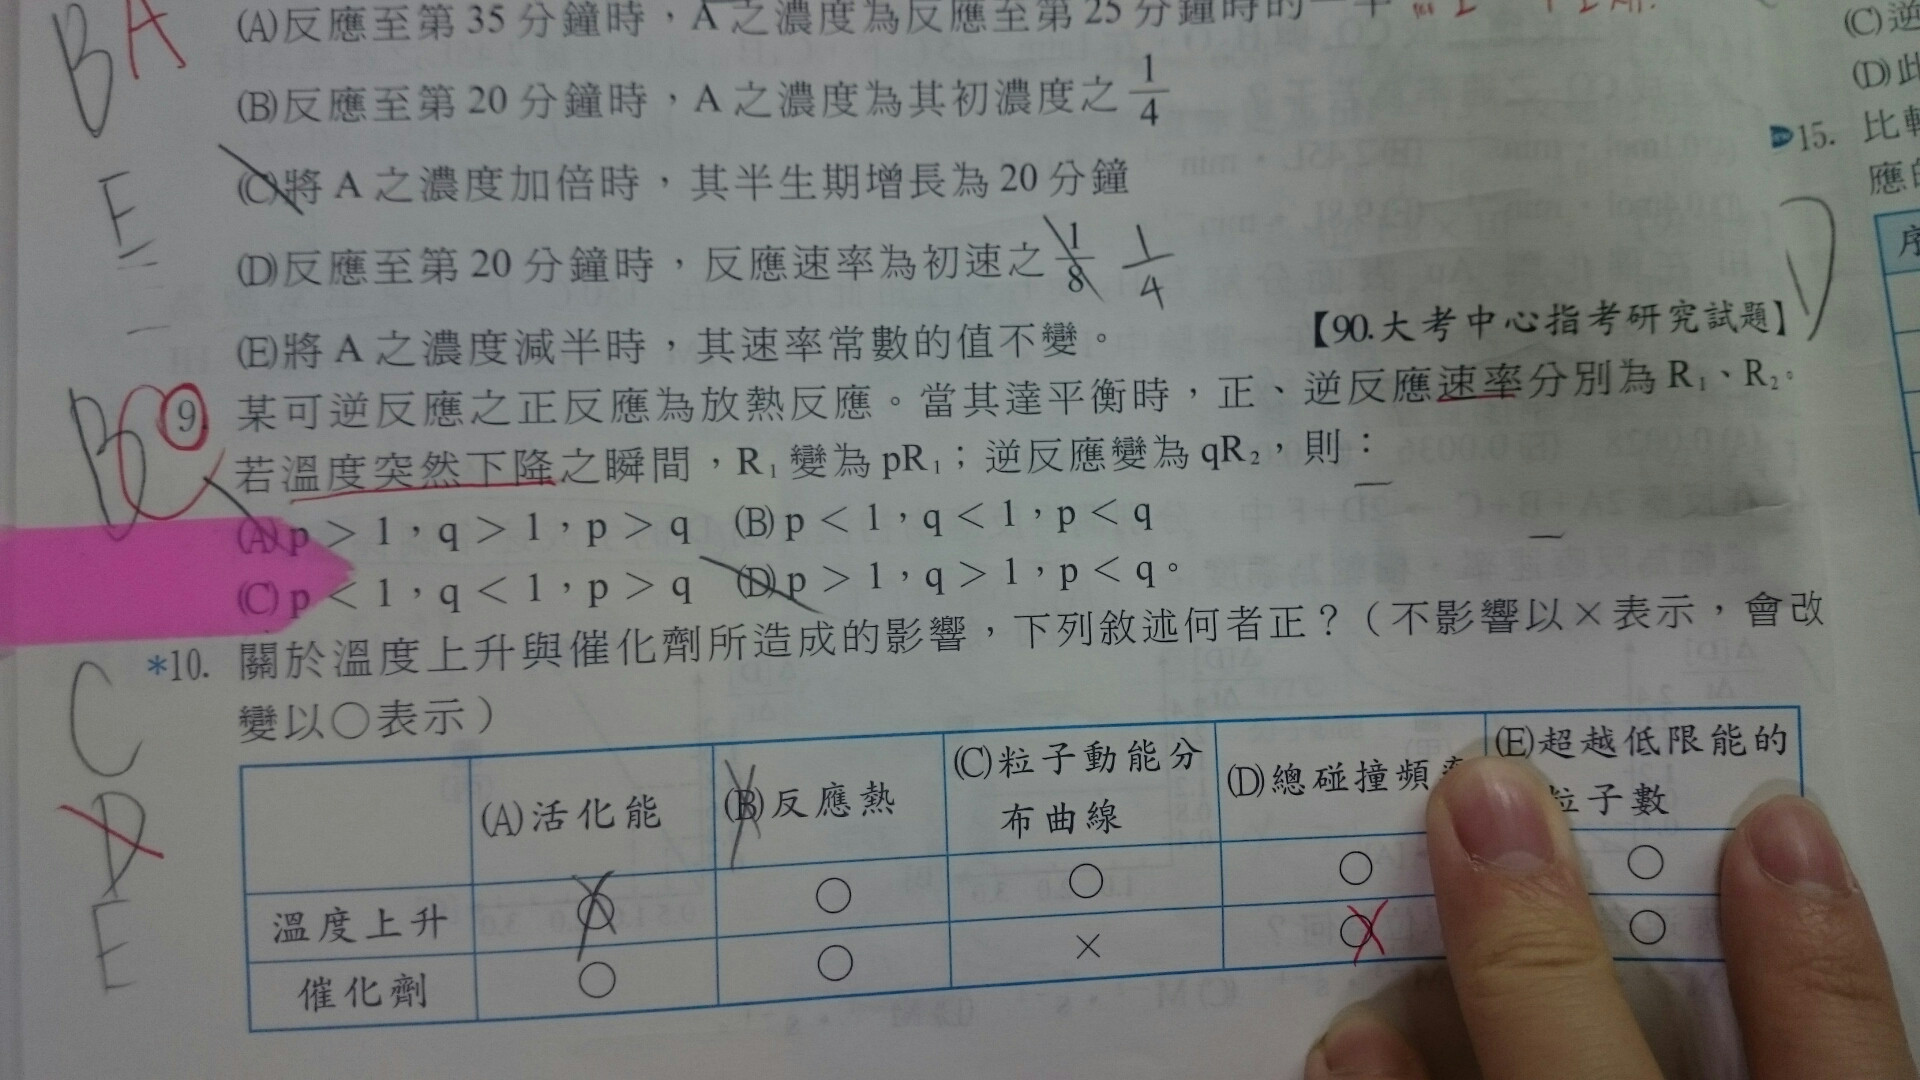 (A)反應至第 35 分鐘時，A 之濃度為反應至第 25 分鐘時的一半
(B)反應至第 20 分鐘時，A 之濃度為其初濃度之 1/4
(C)將 A 之濃度加倍時，其半生期增長為 20 分鐘
(D)反應至第 20 分鐘時，反應速率為初速之 1/8 1/4
(E)將 A 之濃度減半時，其速率常數的值不變。
【90.大考中心指考研究試題】
B A
E
D
BC
9. 某可逆反應之正反應為放熱反應。當其達平衡時，正、逆反應速率分別為 R₁、R₂。
若溫度突然下降之瞬間，R₁ 變為 pR₁；逆反應變為 qR₂，則：
(A) p > 1，q > 1，p > q (B) p < 1，q < 1，p < q
(C) p < 1，q < 1，p > q (D) p > 1，q > 1，p < q。
*10. 關於溫度上升與催化劑所造成的影響，下列敘述何者正？（不影響以×表示，會改
變以○表示）
C
D
E
(A)活化能 (B)反應熱 (C)粒子動能分 (D)總碰撞頻 (E)超越低限能的
布曲線 粒子數
溫度上升 ○ ○ ○ ○ ○
催化劑 ○ ○ × ○ ○
X
(C)逆
(D)此
15. 比較
應的
序